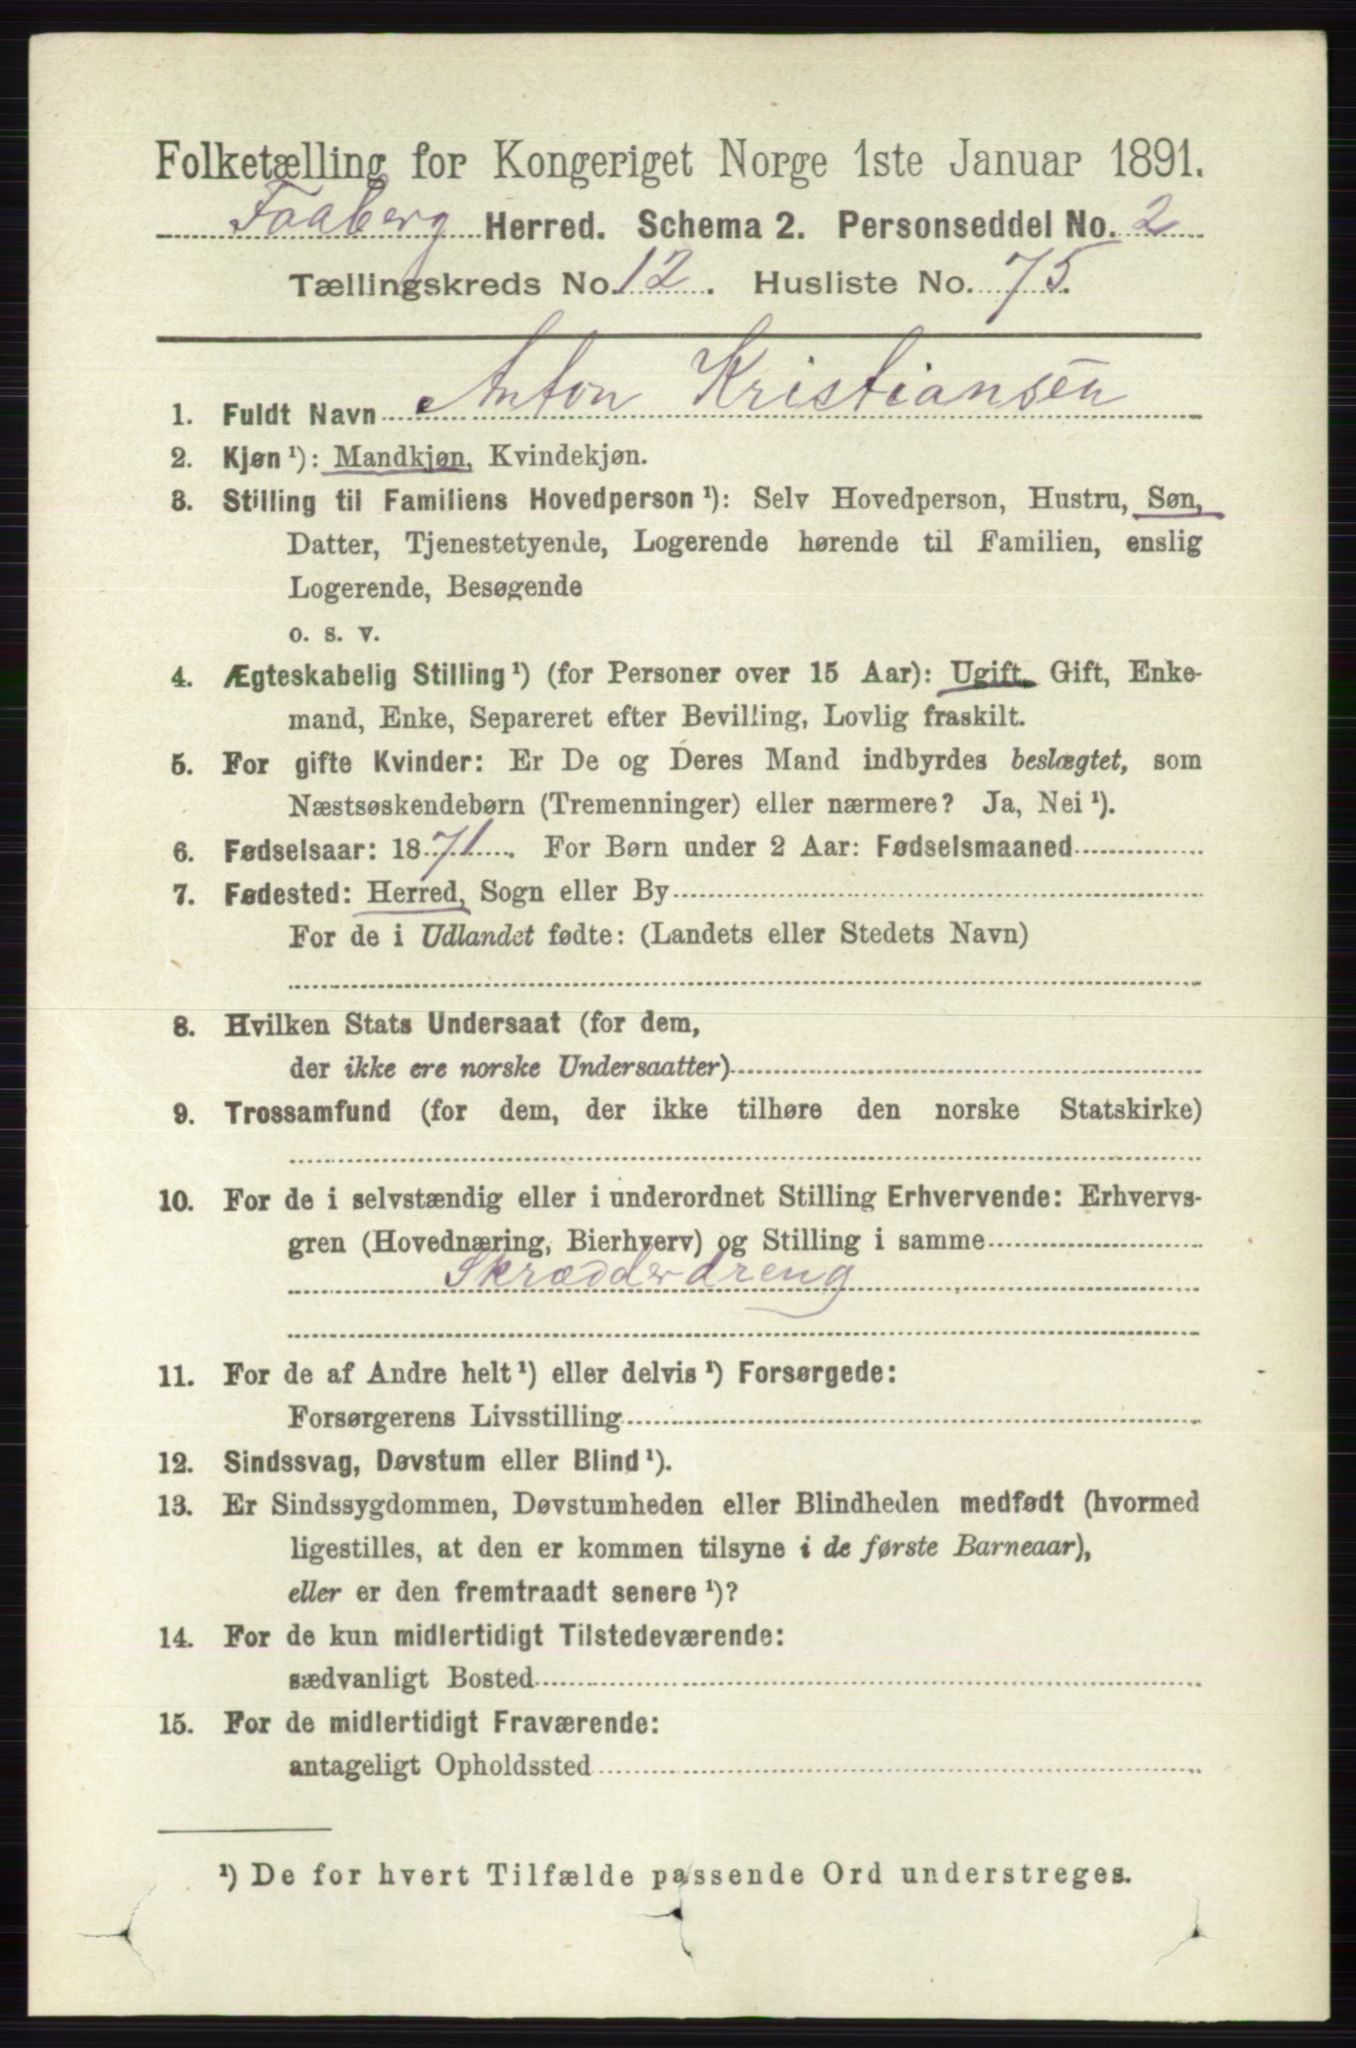 Folketælling for Kongeriget Norge 1ste Januar 1891.
Faaberg Herred. Schema 2. Personseddel No. 2
Tællingskreds No. 12. Husliste No. 75.
1. Fuldt Navn Anton Kristiansen
2. Kjøn ¹): Mandkjøn, Kvindekjøn.
3. Stilling til Familiens Hovedperson ¹): Selv Hovedperson, Hustru, Søn,
Datter, Tjenestetyende, Logerende hørende til Familien, enslig
Logerende, Besøgende
o. s. v.
4. Ægteskabelig Stilling ¹) (for Personer over 15 Aar): Ugift, Gift, Enke-
mand, Enke, Separeret efter Bevilling, Lovlig fraskilt.
5. For gifte Kvinder: Er De og Deres Mand indbyrdes beslægtet, som
Næstsøskendebørn (Tremenninger) eller nærmere? Ja, Nei ¹).
6. Fødselsaar: 1871. For Børn under 2 Aar: Fødselsmaaned
7. Fødested: Herred, Sogn eller By
For de i Udlandet fødte: (Landets eller Stedets Navn)
8. Hvilken Stats Undersaat (for dem,
der ikke ere norske Undersaatter)
9. Trossamfund (for dem, der ikke tilhøre den norske Statskirke)
10. For de i selvstændig eller i underordnet Stilling Erhvervende: Erhvervs-
gren (Hovednæring, Bierhverv) og Stilling i samme
Skrædderdreng
11. For de af Andre helt ¹) eller delvis ¹) Forsørgede:
Forsørgerens Livsstilling
12. Sindssvag, Døvstum eller Blind ¹).
13. Er Sindssygdommen, Døvstumheden eller Blindheden medfødt (hvormed
ligestilles, at den er kommen tilsyne i de første Barneaar),
eller er den fremtraadt senere ¹)?
14. For de kun midlertidigt Tilstedeværende:
sædvanligt Bosted
15. For de midlertidigt Fraværende:
antageligt Opholdssted
¹) De for hvert Tilfælde passende Ord understreges.